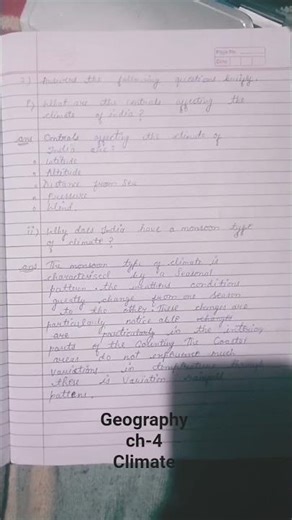 Page No.
Date
2) Answer the following questions briefly.
i) What are the controls affecting the
climate of india?
ans Controls affecting the climate of
India are:
• latitude
• Altitude
• Distance from Sea
• Pressure
• Wind.
ii) Why does India have a monsoon type
of climate?
ans The monsoon type of climate is
characterised by a Seasonal
pattern, the weathers conditions
greatly change from one season
to the other. These changes are
particularly notice able changes
are particularly in the interior
parts of the Country. The Coastal
areas do not experience much
variations in temperature though
there is variation rainfall
pattens.
Geography
ch-4
Climate